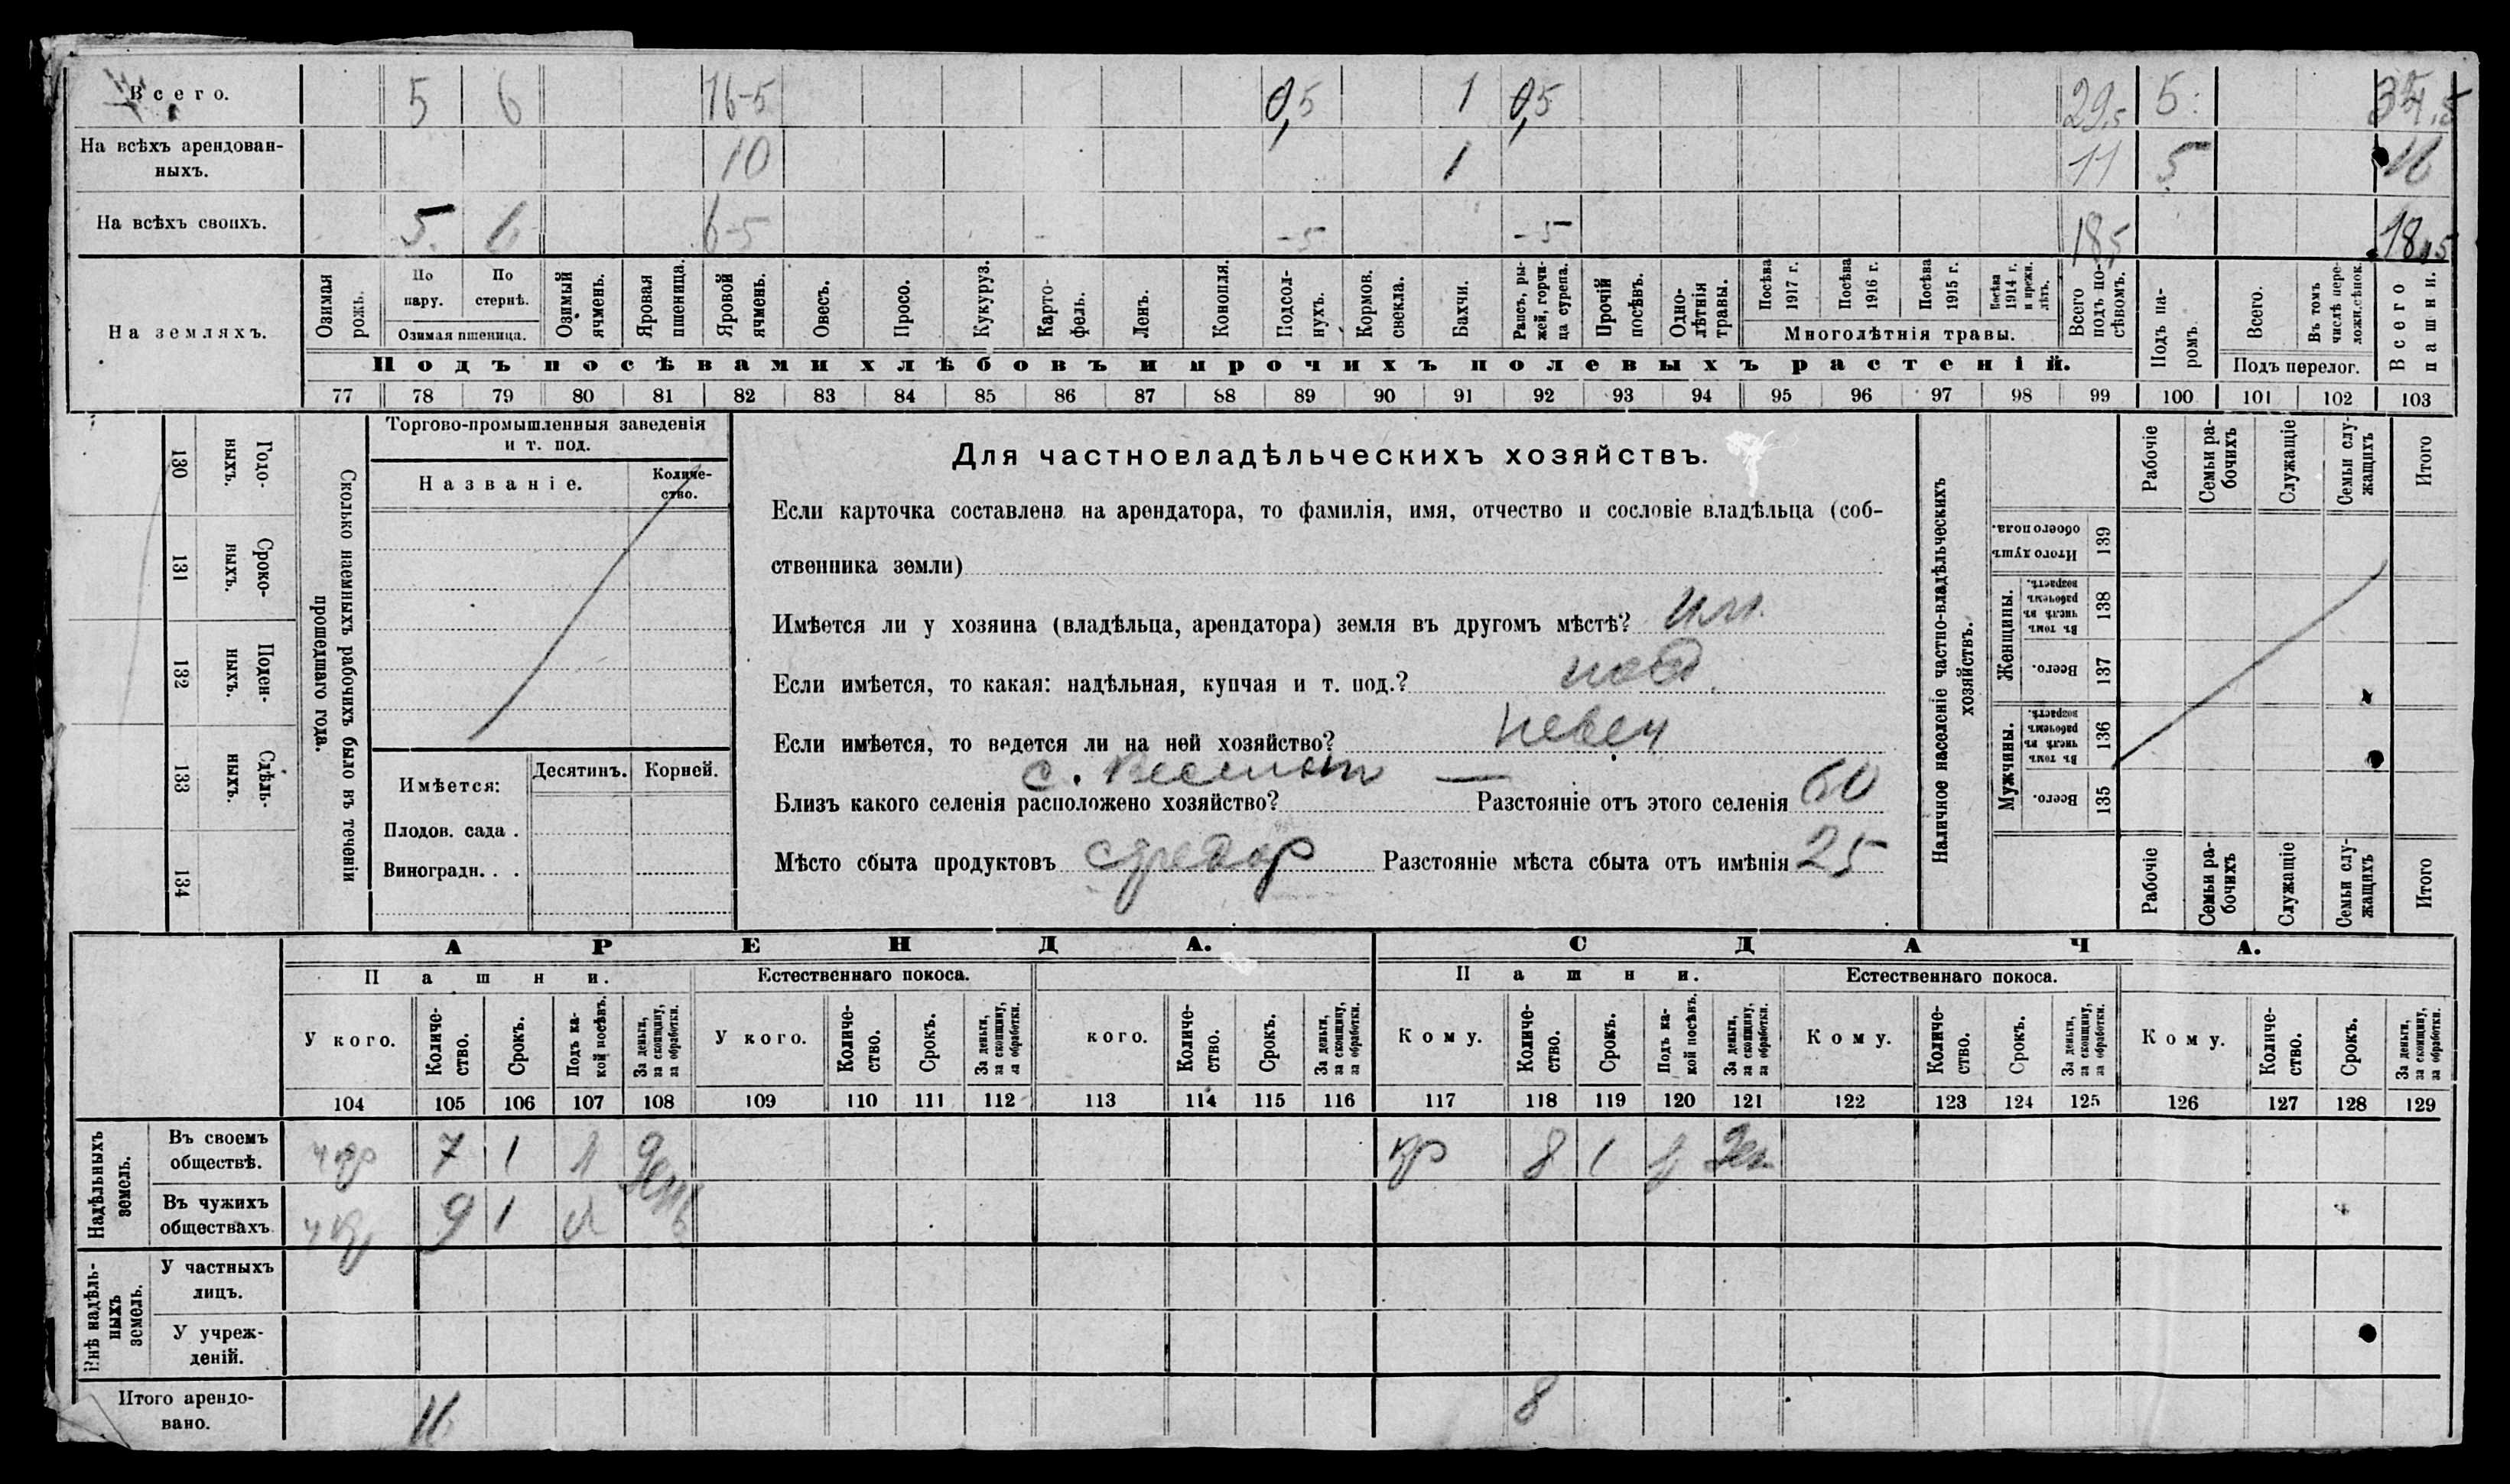 Всего. 5 6 16-5 0,5 1 0,5 29,5 5 34,5
На всѣхъ арендованныхъ. 10 1 11 5 16
На всѣхъ своихъ. 5 6 6-5 -5 -5 18,5 18,5
На земляхъ.
Озимая рожь.
По пару.
По стернѣ.
Озимая пшеница.
Озимый ячмень.
Яровая пшеница.
Яровой ячмень.
Овесъ.
Просо.
Кукуруз.
Картофель.
Ленъ.
Конопля.
Подсолнухъ.
Кормов. свекла.
Бахчи.
Рапсъ, рыжей, горчица сурепа.
Прочій посѣвъ.
Однолѣтнія травы.
Посѣва 1917 г.
Посѣва 1916 г.
Посѣва 1915 г.
Посѣва 1914 г. и прежн. лѣтъ.
Многолѣтнія травы.
Всего подъ посѣвомъ.
Подъ паромъ.
Всего.
Въ томъ числѣ переложн. сѣнок.
Подъ перелог.
Всего пашни.
Подъ посѣвами хлѣбовъ и прочихъ полевыхъ растеній.
77 78 79 80 81 82 83 84 85 86 87 88 89 90 91 92 93 94 95 96 97 98 99 100 101 102 103
130 Годовыхъ.
131 Сроковыхъ.
132 Поденныхъ.
133 Сдѣльныхъ.
134
Сколько наемныхъ рабочихъ было въ теченіи прошедшаго года.
Торгово-промышленныя заведенія
и т. под.
Названіе.
Количество.
Имѣется:
Десятинъ.
Корней.
Плодов. сада .
Виноградн. . .
Для частновладѣльческихъ хозяйствъ.
Если карточка составлена на арендатора, то фамилія, имя, отчество и сословіе владѣльца (соб-
ственника земли)
Имѣется ли у хозяина (владѣльца, арендатора) земля въ другомъ мѣстѣ? им.
Если имѣется, то какая: надѣльная, купчая и т. под.?
Если имѣется, то ведется ли на ней хозяйство?
Близъ какого селенія расположено хозяйство? с. Разстояніе отъ этого селенія 60
Мѣсто сбыта продуктовъ Разстояніе мѣста сбыта отъ имѣнія 25
Наличное населеніе частно-владѣльческихъ хозяйствъ.
Рабочіе
Семьи рабочихъ
Служащіе
Семьи служащихъ
Итого
Итого душъ обоего пола. 139
Женщины.
Въ томъ числѣ въ рабочемъ возрастѣ. 138
Всего. 137
Мужчины.
Въ томъ числѣ въ рабочемъ возрастѣ. 136
Всего. 135
Рабочіе
Семьи рабочихъ
Служащіе
Семьи служащихъ
Итого
АРЕНДА.
СДАЧА.
Пашни.
Естественнаго покоса.
Пашни.
Естественнаго покоса.
У кого.
Количество.
Срокъ.
Подъ какой посѣвъ.
За деньги, за скопщину, за обработки.
У кого.
Количество.
Срокъ.
За деньги, за скопщину, за обработки.
кого.
Количество.
Срокъ.
За деньги, за скопщину, за обработки.
Кому.
Количество.
Срокъ.
Подъ какой посѣвъ.
За деньги, за скопщину, за обработки.
Кому.
Количество.
Срокъ.
За деньги, за скопщину, за обработки.
Кому.
Количество.
Срокъ.
За деньги, за скопщину, за обработки.
104 105 106 107 108 109 110 111 112 113 114 115 116 117 118 119 120 121 122 123 124 125 126 127 128 129
Надѣльныхъ земель.
Въ своемъ обществѣ. у кр 7 1 кр 8 1 ден
Въ чужихъ обществахъ у кр 9 1
Внѣ надѣльныхъ земель.
У частныхъ лицъ.
У учрежденій.
Итого арендовано. 16 8